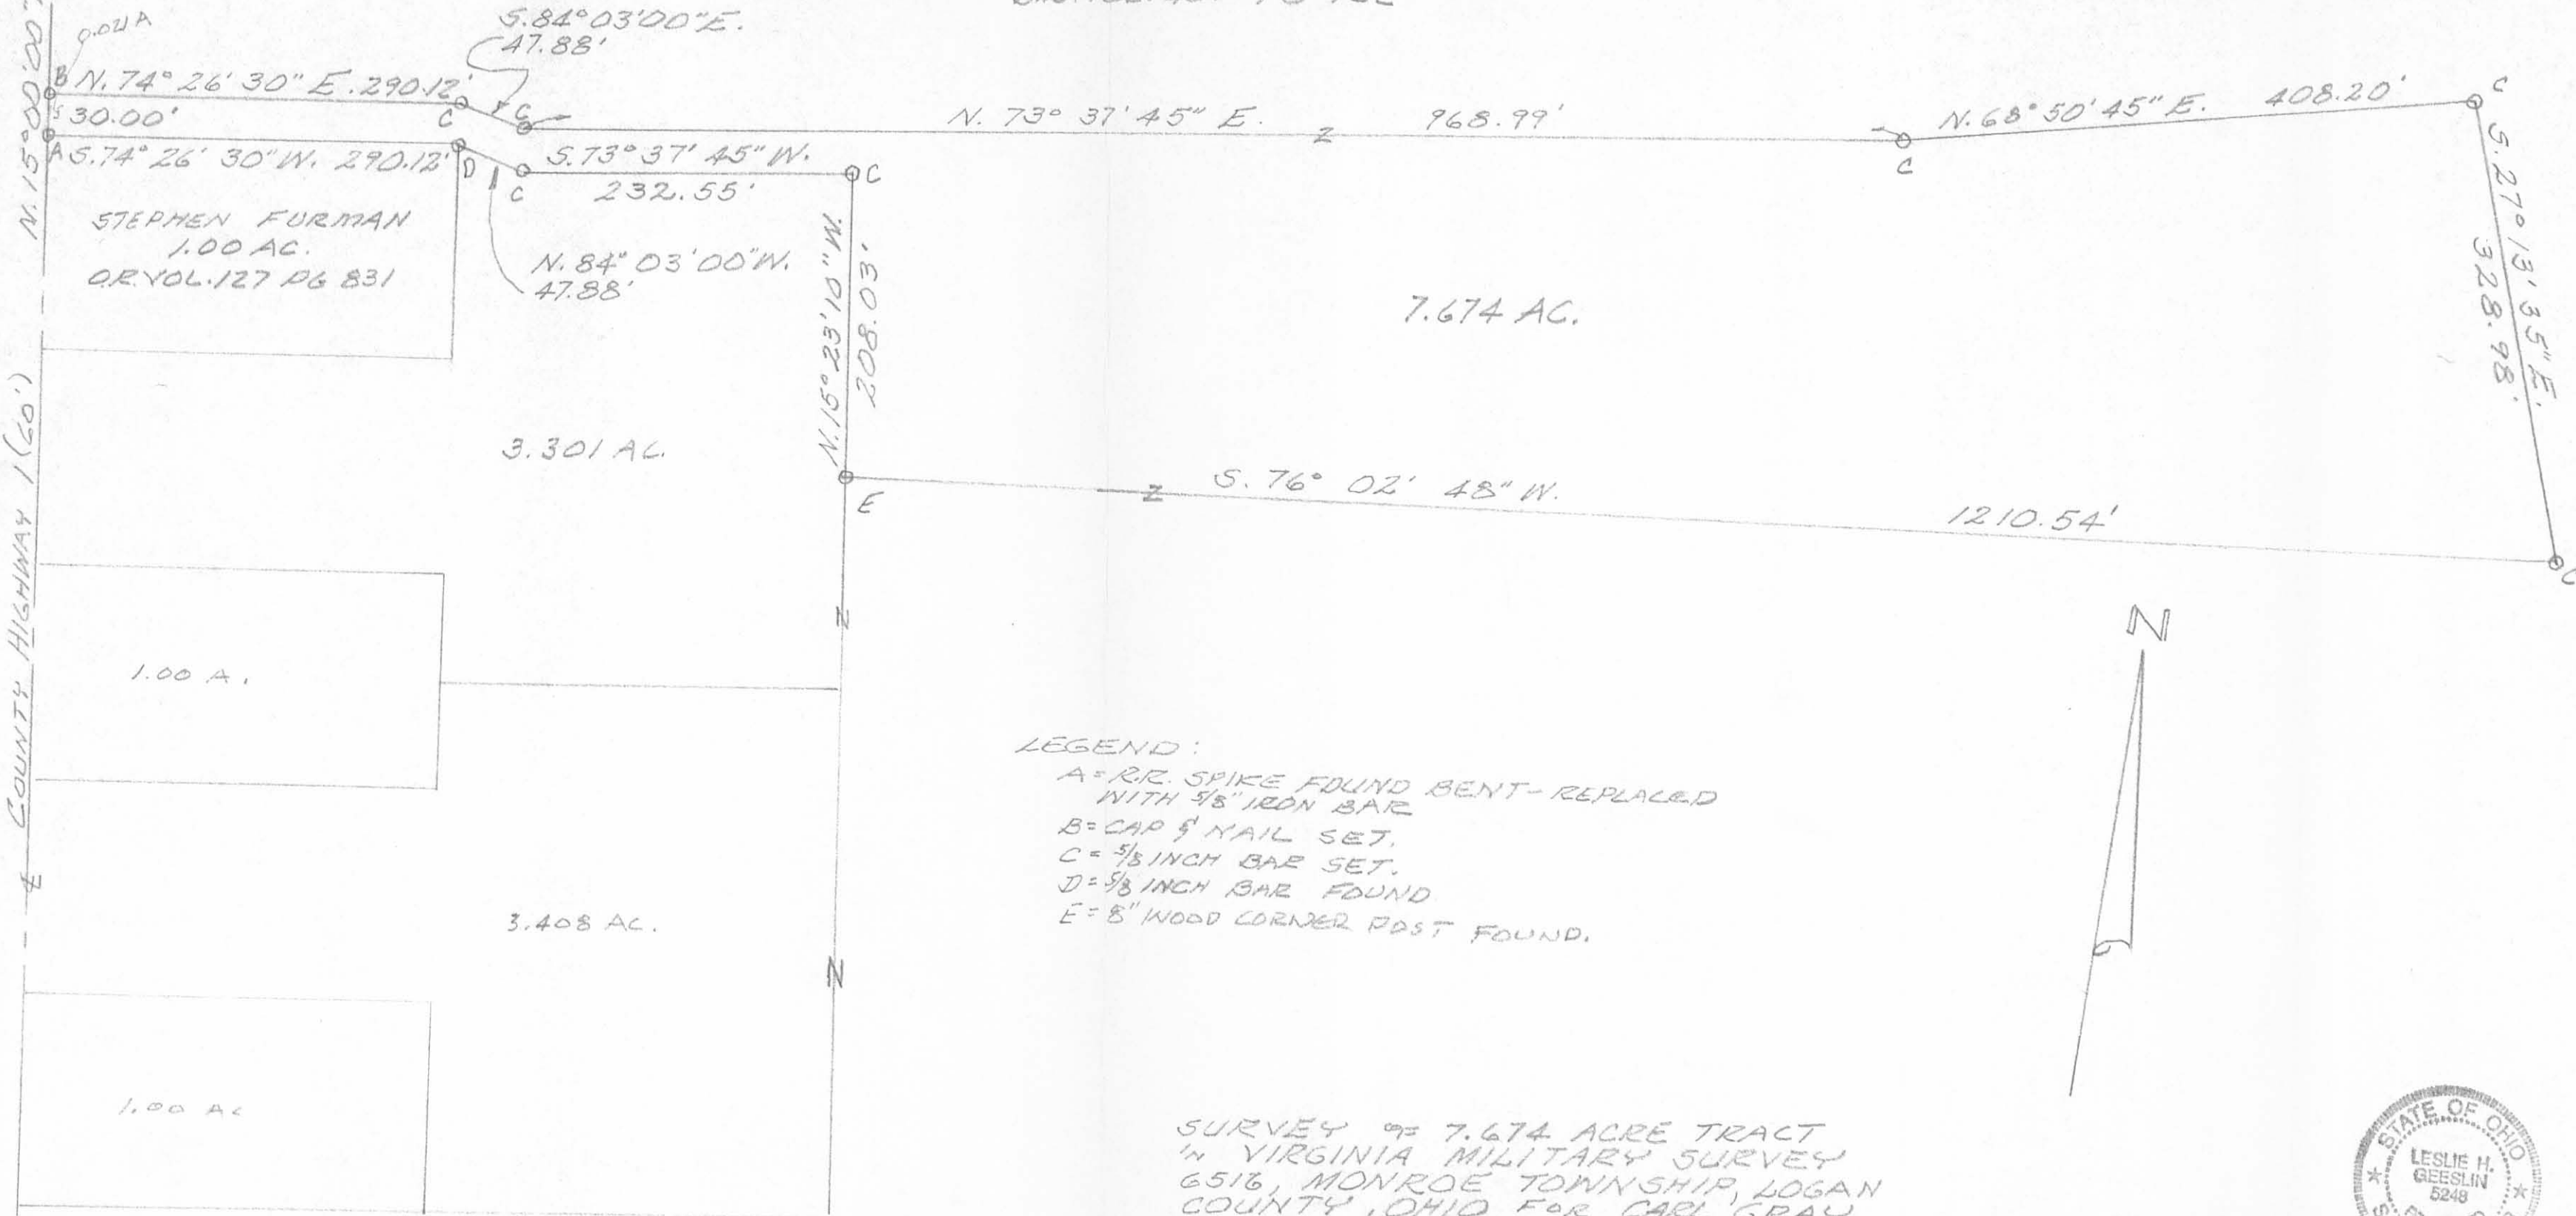 S.84°03'00"E.
47.88'
N.15°00'00"
B N.74°26'30"E. 290.12'
C
C
30.00'
A S.74°26'30"W. 290.12'
D
C
S.73°37'45"W.
232.55'
C
N. 73° 37' 45" E. 968.99'
C
N.68°50'45"E. 408.20'
C
S.27°13'35"E.
328.98'
C
STEPHEN FURMAN
1.00 AC.
O.R.VOL.127 PG 831
N.84°03'00"W.
47.88'
N.15°23'10"W.
208.03'
7.674 AC.
3.301 AC.
E
S. 76° 02' 48" W.
1210.54'
COUNTY HIGHWAY 1 (60')
1.00 A.
N
3.408 AC.
1.00 AC
LEGEND:
A = R.R. SPIKE FOUND BENT-REPLACED
WITH 5/8" IRON BAR
B = CAP & NAIL SET.
C = 5/8 INCH BAR SET.
D = 5/8 INCH BAR FOUND
E = 8" WOOD CORNER POST FOUND.
SURVEY OF 7.674 ACRE TRACT
IN VIRGINIA MILITARY SURVEY
6516, MONROE TOWNSHIP, LOGAN
COUNTY, OHIO FOR CARL GRAY
STATE OF OHIO
LESLIE H.
GEESLIN
5248